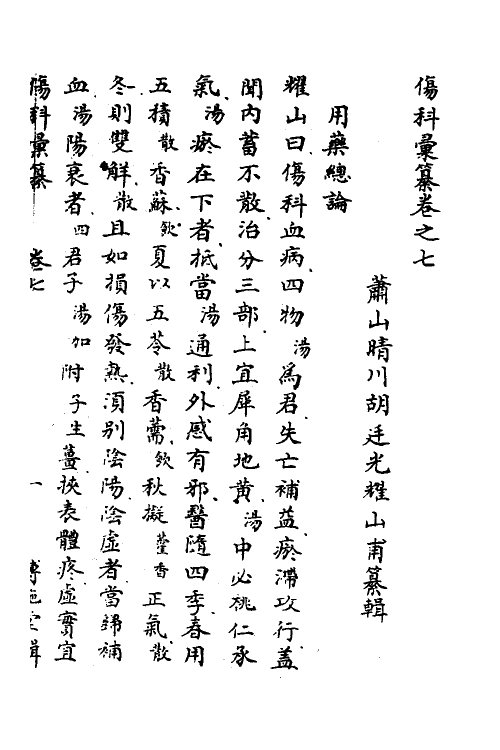 傷科彙纂卷之七
蕭山晴川胡廷光耀山甫纂輯
用藥總論
耀山曰傷科血病四物湯為君失亡補益瘀滯攻行蓋
聞內蓄不散治分三部上宜犀角地黃湯中必桃仁承
氣湯瘀在下者抵當湯通利外感有邪醫隨四季春用
五積散香蘇飲夏以五苓散香薷飲秋擬藿香正氣散
冬則雙解散且如損傷發熱須别陰陽陰虛者當歸補
血湯陽衰者四君子湯加附子生薑挾表體疼虛實宜
傷科彙纂 卷七 一